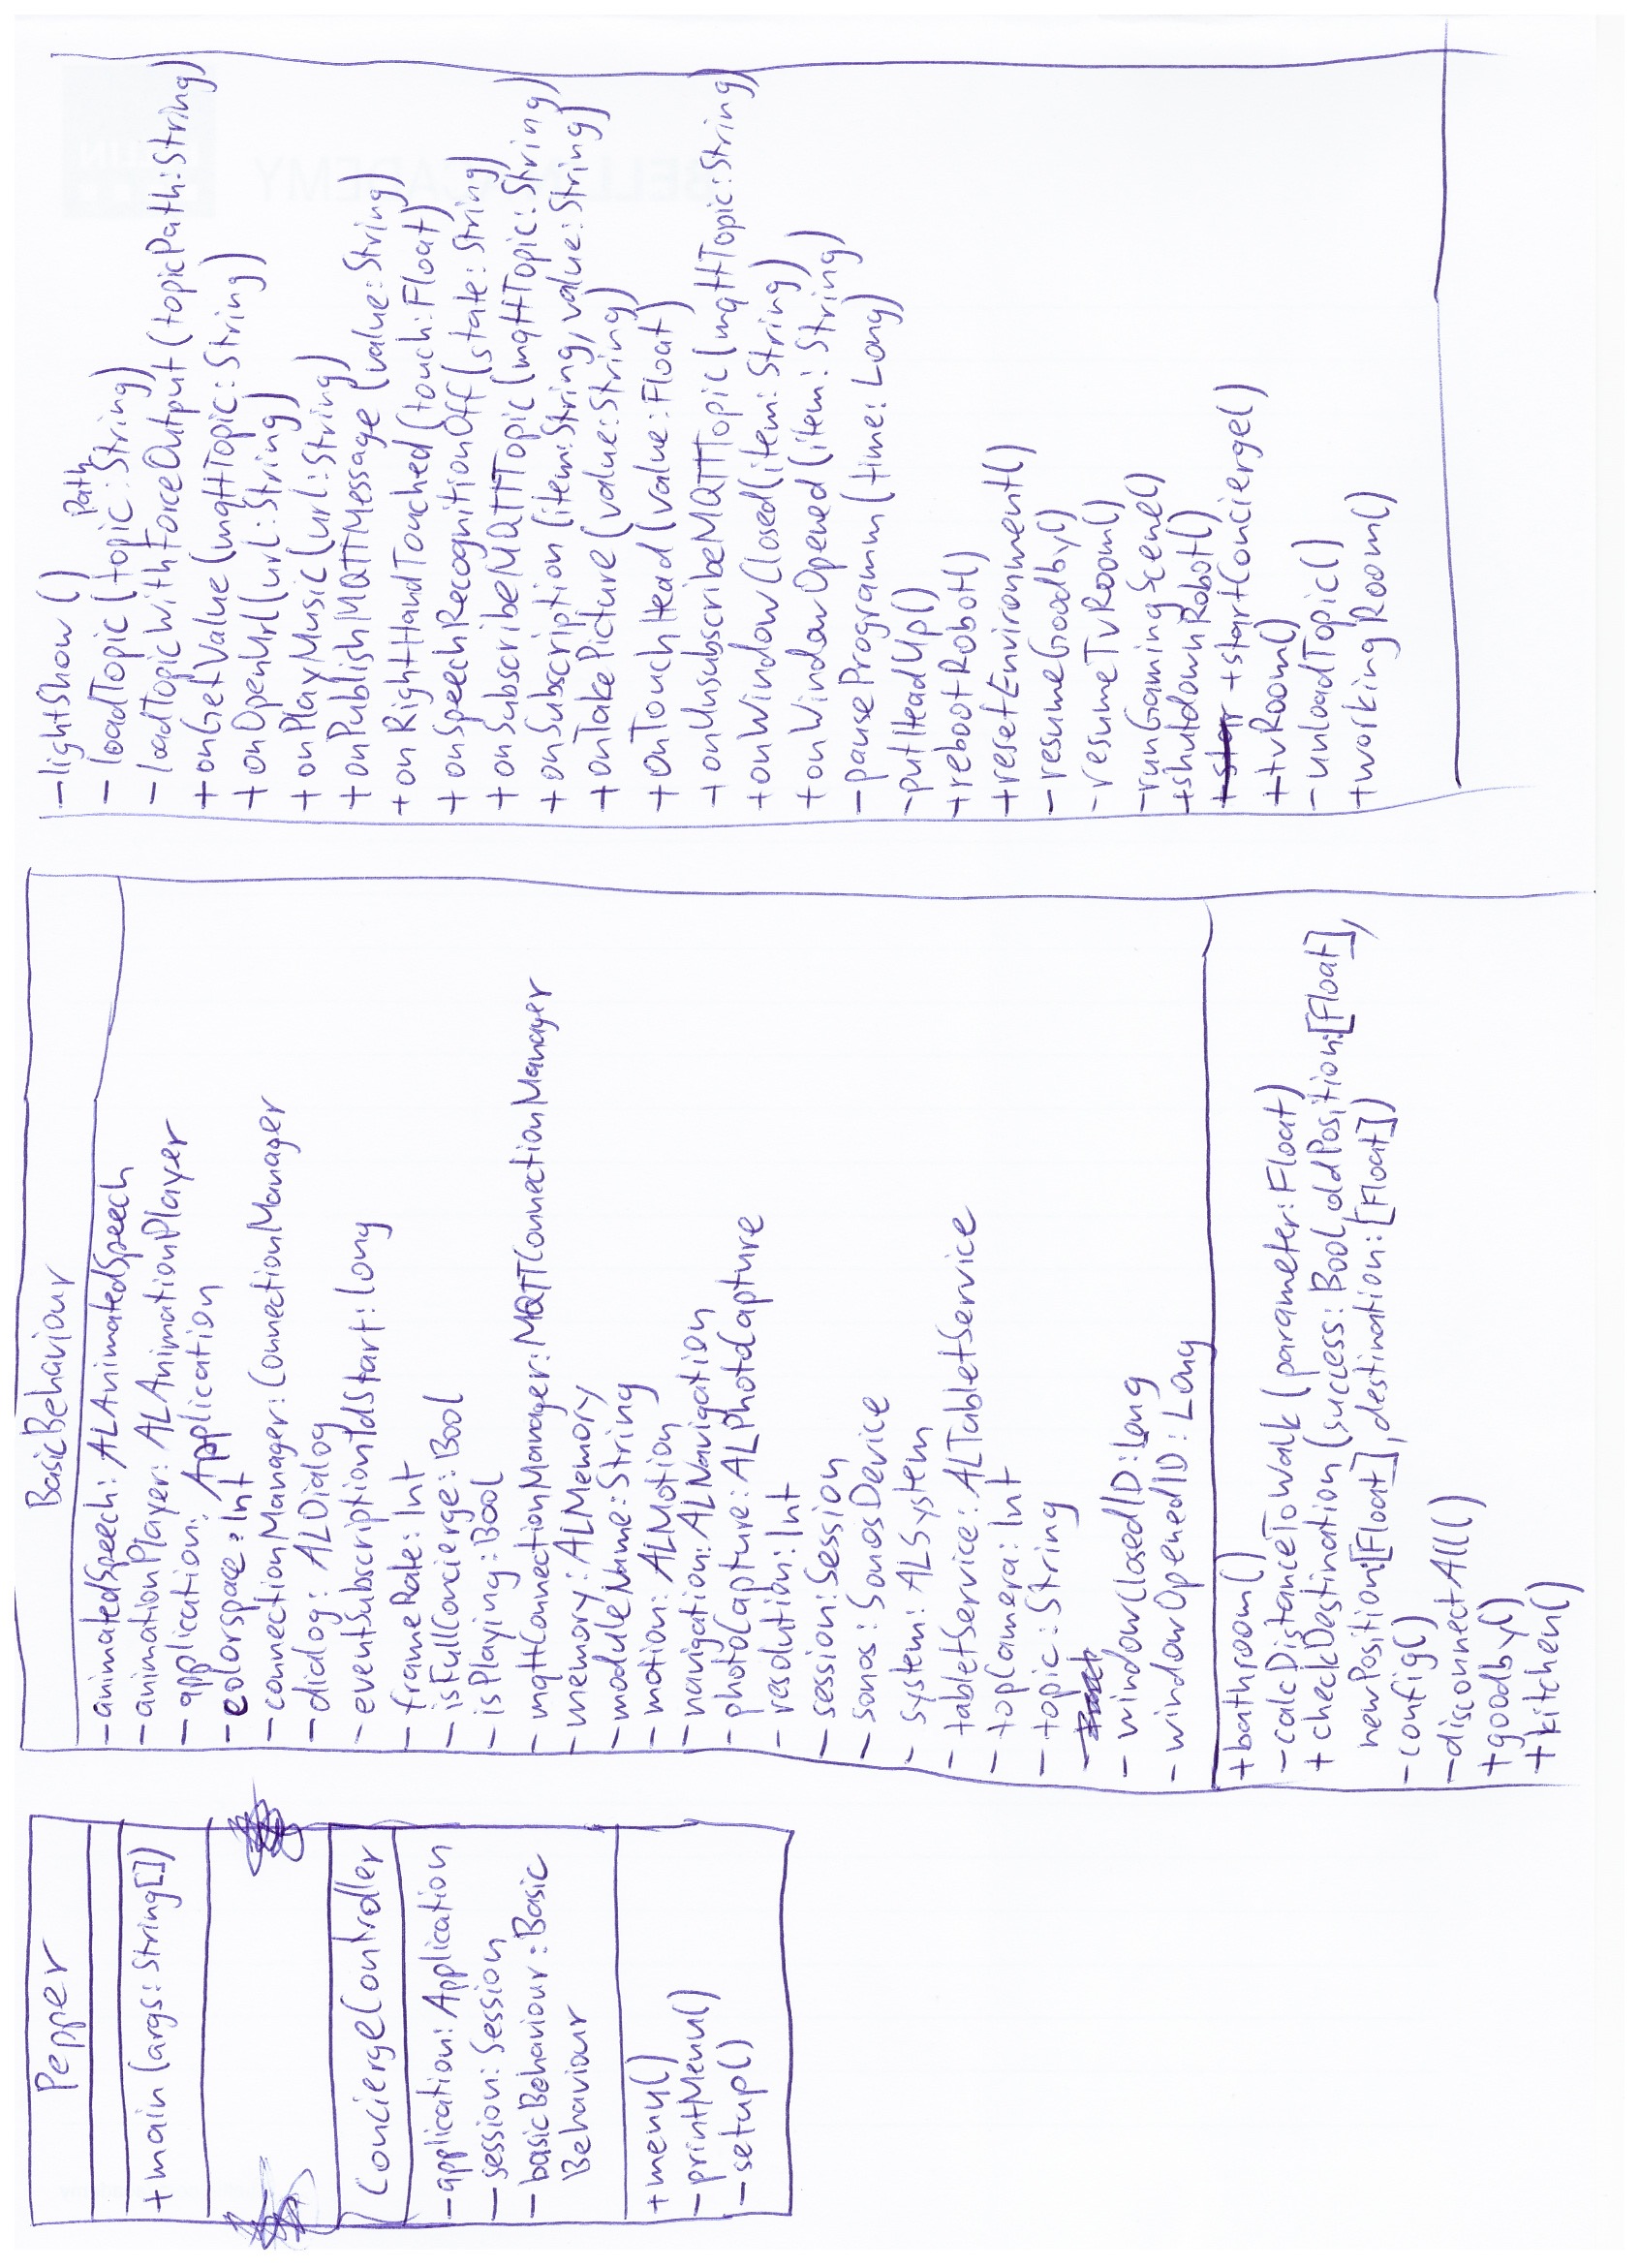 Pepper
+main(args:String[])
ConciergeController
-application:Application
-session:Session
-basicBehaviour:Basic
Behaviour
+menu()
-printMenu()
-setup()
BasicBehaviour
-animatedSpeech:ALAnimatedSpeech
-animationPlayer:ALAnimationPlayer
-application:Application
-colorspace:Int
-connectionManager:ConnectionManager
-dialog:ALDialog
-eventSubscriptionIdStart:Long
-frameRate:Int
-isFullConcierge:Bool
-isPlaying:Bool
-mqttConnectionManager:MQTTConnectionManager
-memory:ALMemory
-moduleName:String
-motion:ALMotion
-navigation:ALNavigation
-photoCapture:ALPhotoCapture
-resolution:Int
-session:Session
-sonos:SonosDevice
-system:ALSystem
-tabletService:ALTabletService
-topCamera:Int
-topic:String
-windowClosedID:Long
-windowOpenedID:Long
+bathroom()
-calcDistanceToWalk(parameter:Float)
+checkDestination(success:Bool,oldPosition:[Float],
newPosition:[Float],destination:[Float])
-config()
-disconnectAll()
+goodby()
+kitchen()
-lightShow()
-loadTopic(topicPath:String)
-loadTopicWithForceOutput(topicPath:String)
+onGetValue(mqttTopic:String)
+onOpenUrl(url:String)
+onPlayMusic(url:String)
+onPublishMQTTMessage(value:String)
+onRightHandTouched(touch:Float)
+onSpeechRecognitionOff(state:String)
+onSubscribeMQTTTopic(mqttTopic:String)
+onSubscription(item:String,value:String)
+onTakePicture(value:String)
+onTouchHead(value:Float)
+onUnsubscribeMQTTTopic(mqttTopic:String)
+onWindowClosed(item:String)
+onWindowOpened(item:String)
-pauseProgramm(time:Long)
-putHeadUp()
+rebootRobot()
+resetEnvironment()
-resumeGoodby()
-resumeTvRoom()
-runGamingScene()
+shutdownRobot()
+startConcierge()
+tvRoom()
-unloadTopic()
+workingRoom()